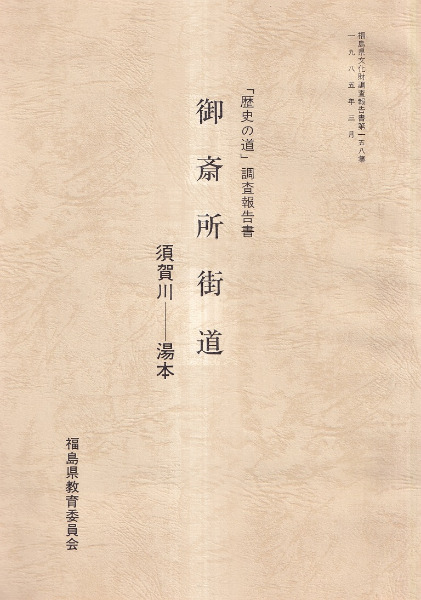 福島県文化財調査報告書第一五八集
一九八五年三月
「歴史の道」調査報告書
御斎所街道
須賀川──湯本
福島県教育委員会